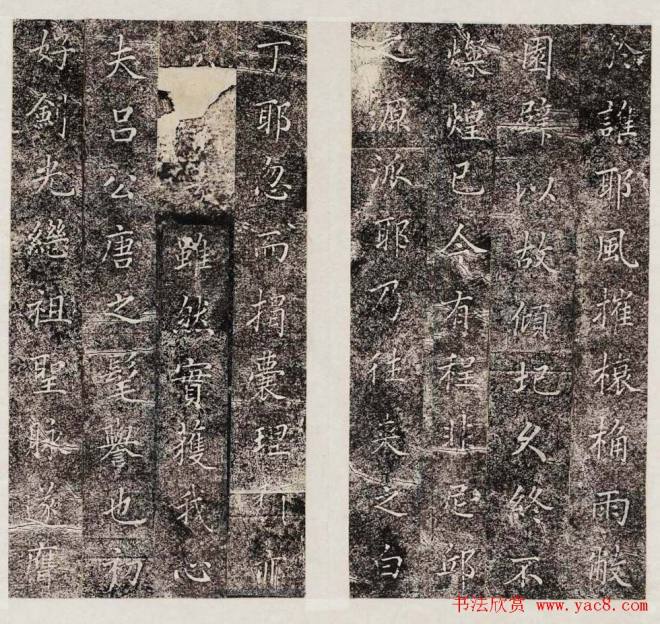 於誰耶風摧榱桷雨敗
園壁以故傾圮久終不
煥煌已今有程非尼邱
之源派耶乃往來之白
丁耶忽而捐囊理村亦
雖然實獲我心
夫呂公唐之髦譽也初
好劍光繼祖聖脉家膺
书法欣赏 www.yac8.com